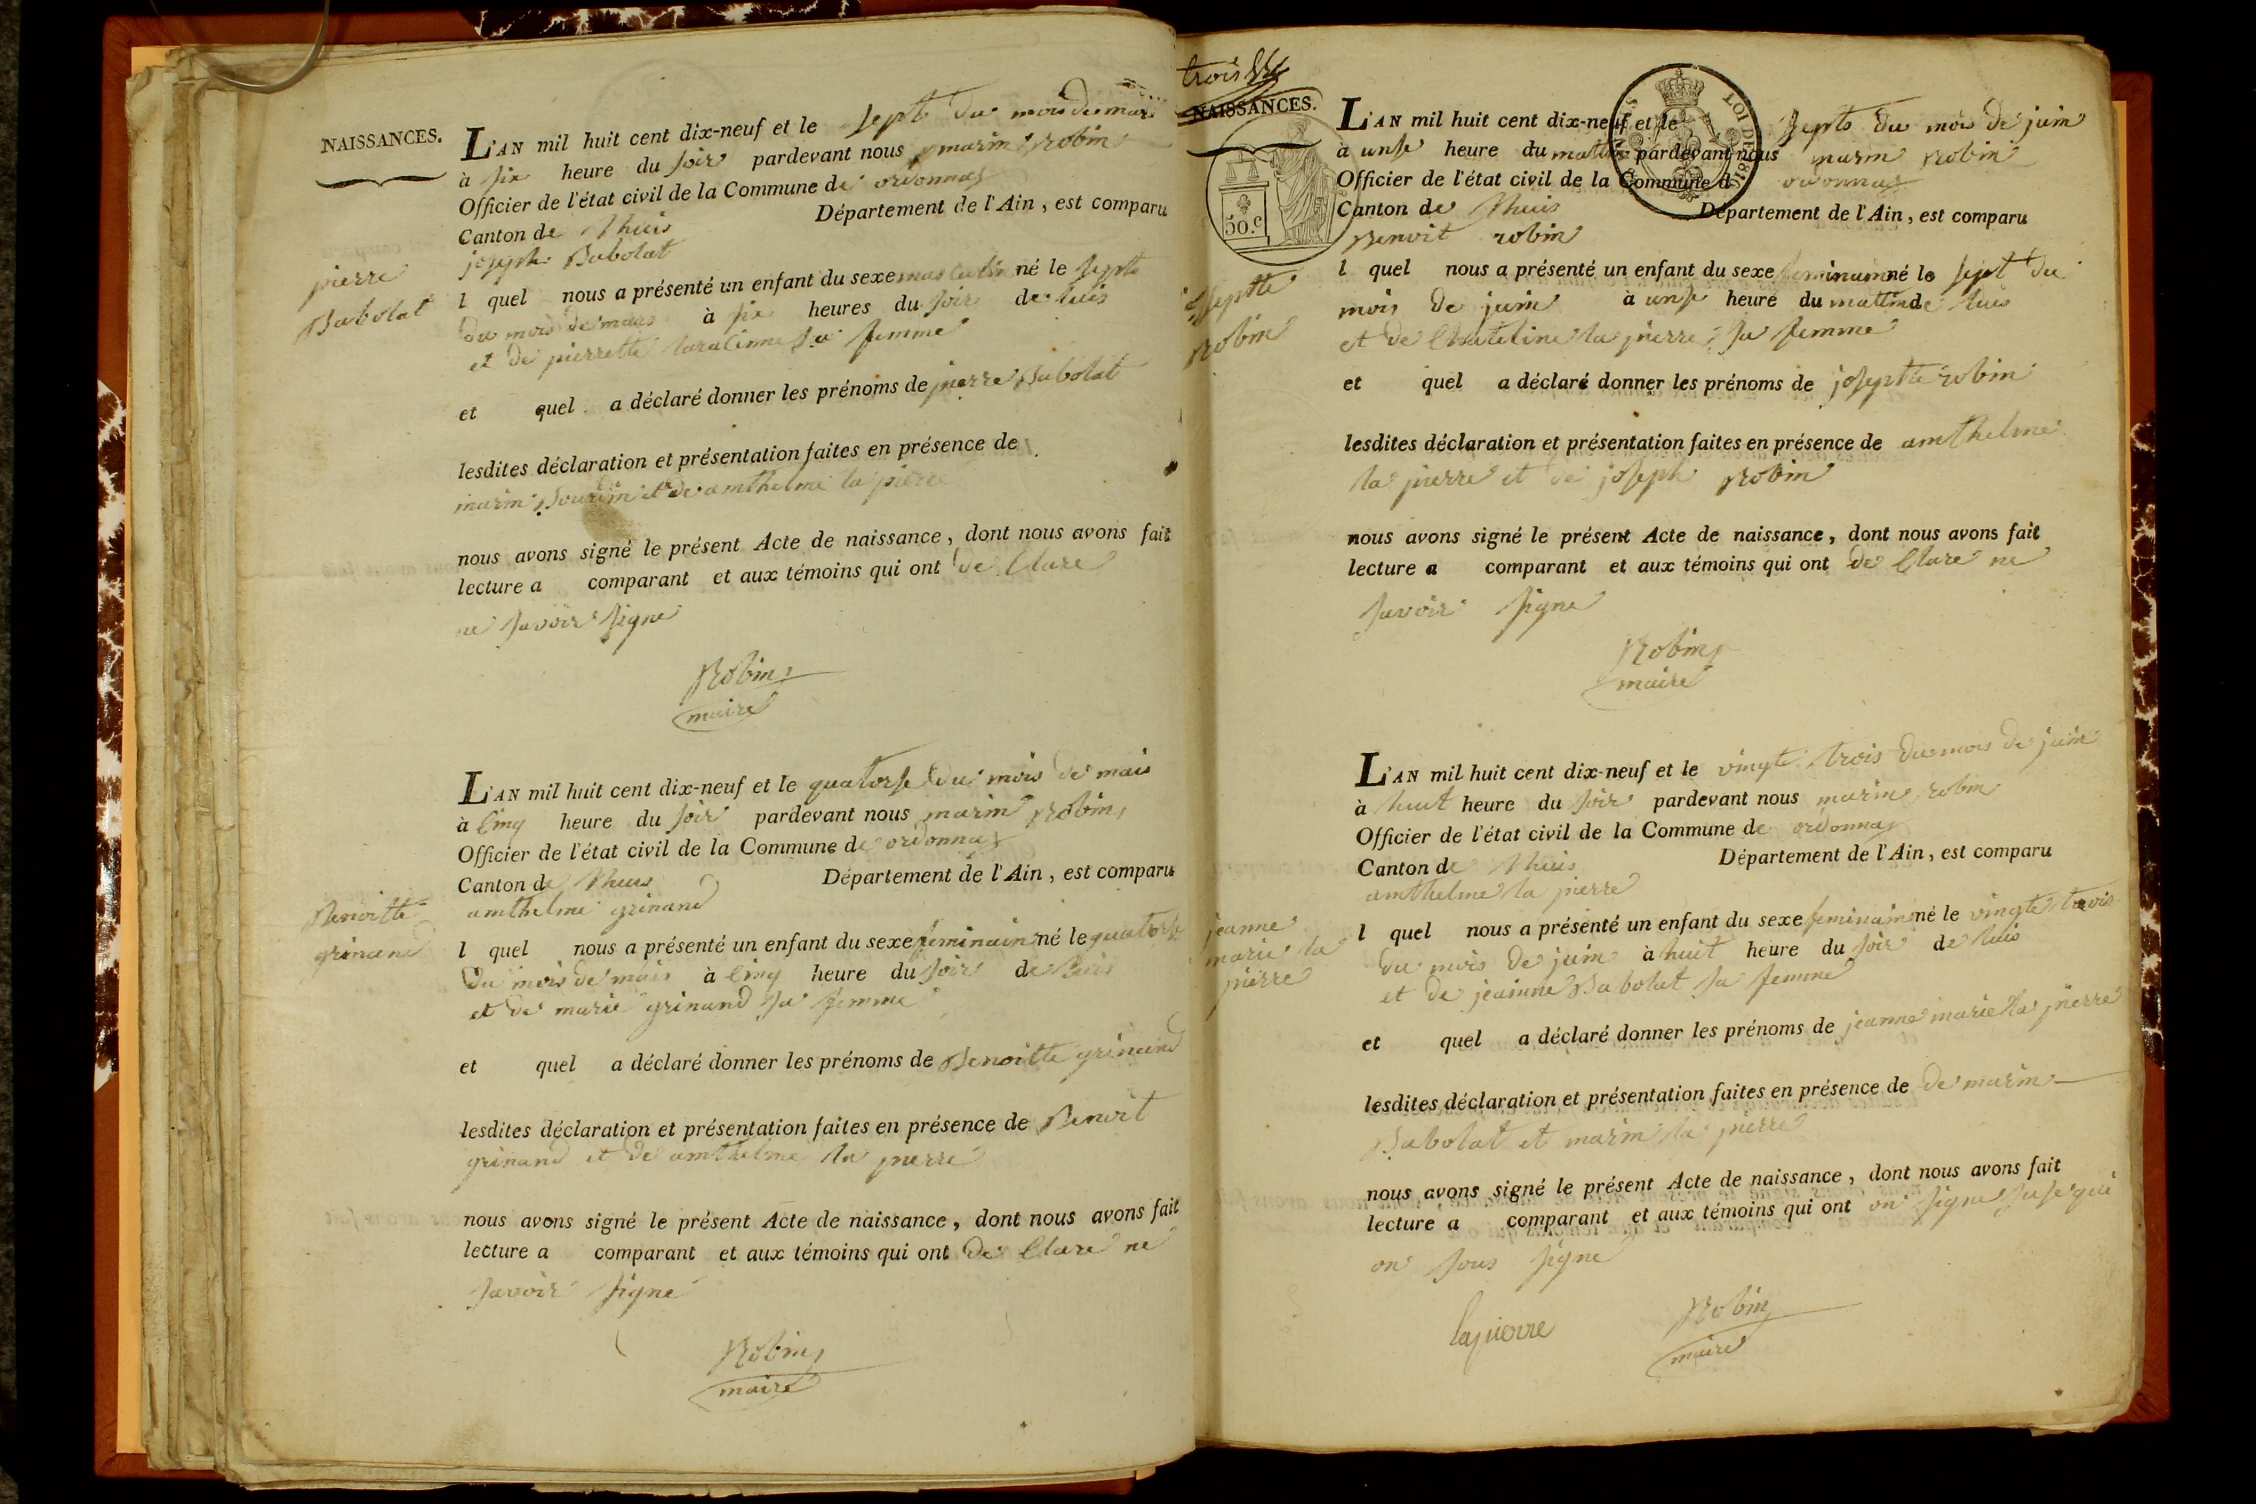 NAISSANCES.
L'AN mil huit cent dix-neuf et le sept du mois de mars
à six heure du soir pardevant nous marin Robin
Officier de l'état civil de la Commune de ordonnas
Canton de lhuis Département de l'Ain, est comparu
joseph Babolat
pierre
Babolat
l quel nous a présenté un enfant du sexe masculin né le septe
du mois de mars à six heures du soir de luis
et de pierrette sa femme
et quel a déclaré donner les prénoms de pierre Babolat
lesdites déclaration et présentation faites en présence de
marin et de amthelme la pierre
nous avons signé le présent Acte de naissance, dont nous avons fait
lecture a comparant et aux témoins qui ont de Clare
ne savoir signe
Robin
maire
L'AN mil huit cent dix-neuf et le quatorse du mois de mais
à Cinq heure du soir pardevant nous marin Robin
Officier de l'état civil de la Commune de ordonnas
Canton de lhuis Département de l'Ain, est comparu
amthelme grinand
Benoitte
grinand
l quel nous a présenté un enfant du sexe feminain né le quatorse
du mois de mais à Cinq heure du soir de luis
et de marie grinand sa femme
et quel a déclaré donner les prénoms de Benoitte grinand
lesdites déclaration et présentation faites en présence de Benoit
grinand et de amthelme la pierre
nous avons signé le présent Acte de naissance, dont nous avons fait
lecture a comparant et aux témoins qui ont de Clare ne
savoir signe
Robin
maire
trois
NAISSANCES.
50.c
LOI DE 1816
L'AN mil huit cent dix-neuf et le septe du mois de juin
à unse heure du mattin pardevant nous marin Robin
Officier de l'état civil de la Commune d ordonnas
Canton de lhuis Département de l'Ain, est comparu
Benoit robin
josephte
Robin
l quel nous a présenté un enfant du sexe feminain né le sept du
mois de juin à unse heure du mattin de luis
et de Chateline la pierre sa femme
et quel a déclaré donner les prénoms de josephte robin
lesdites déclaration et présentation faites en présence de amthelme
la pierre et de joseph Robin
nous avons signé le présent Acte de naissance, dont nous avons fait
lecture a comparant et aux témoins qui ont de Clare ne
savoir signe
Robin
maire
L'AN mil huit cent dix-neuf et le vingte trois du mois de juin
à huit heure du soir pardevant nous marin robin
Officier de l'état civil de la Commune de ordonnas
Canton de lhuis Département de l'Ain, est comparu
amthelme la pierre
jeanne
marie la
pierre
l quel nous a présenté un enfant du sexe feminain né le vingte trois
du mois de juin à huit heure du soir de luis
et de jeainne Babolat sa femme
et quel a déclaré donner les prénoms de jeanne marie la pierre
lesdites déclaration et présentation faites en présence de de marin
Babolat et marin la pierre
nous avons signé le présent Acte de naissance, dont nous avons fait
lecture a comparant et aux témoins qui ont on signe qui
on sous signe
lapierre
Robin
maire